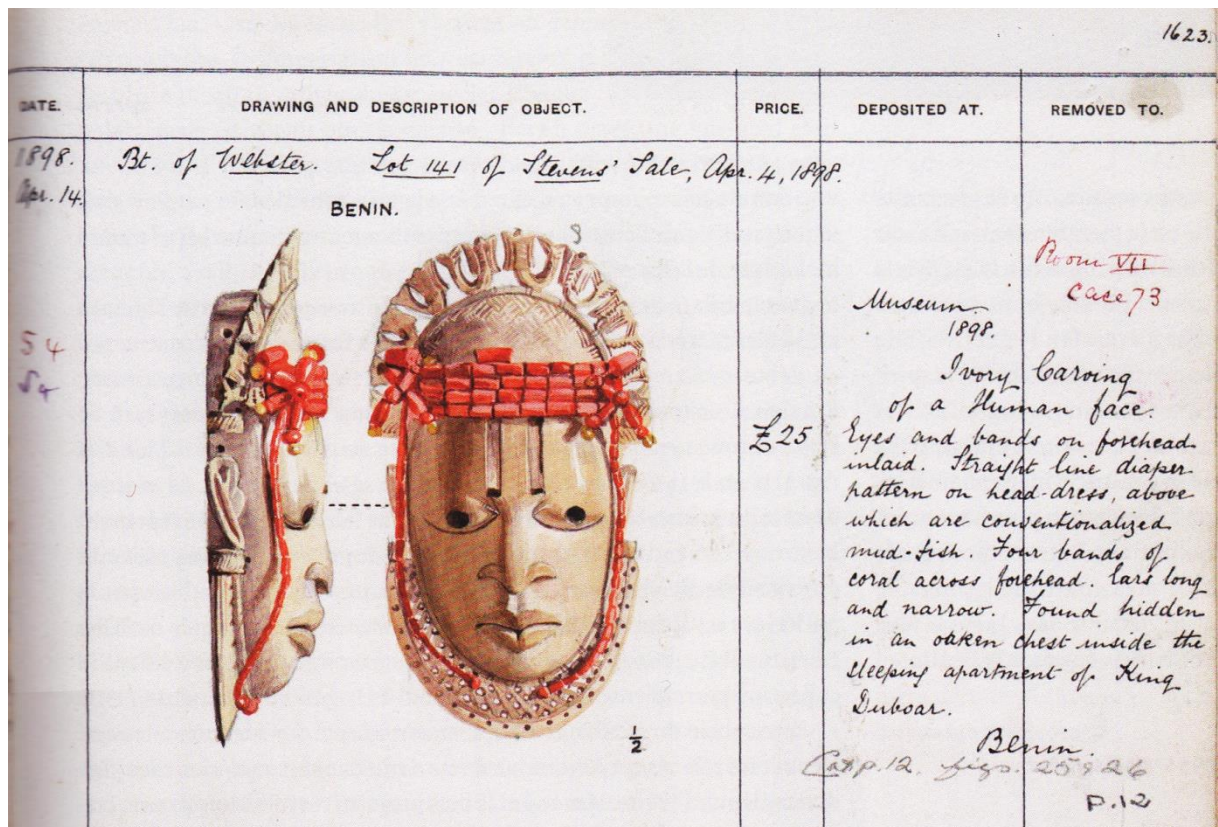 1623.
DATE. DRAWING AND DESCRIPTION OF OBJECT. PRICE. DEPOSITED AT. REMOVED TO.
1898. Bt. of Webster. Lot 141 of Stevens' Sale, Apr. 4, 1898.
Apr. 14.
BENIN.
Room VII
Case 73
Museum.
1898.
54
54
Ivory Carving
of a Human face.
£25
Eyes and bands on forehead
inlaid. Straight line diaper
pattern on head-dress, above
which are conventionalized
mud-fish. Four bands of
coral across forehead. Ears long
and narrow. Found hidden
in an oaken chest inside the
sleeping apartment of King
Duboar.
1/2
Benin.
p. 12. figs. 25 & 26
P. 12